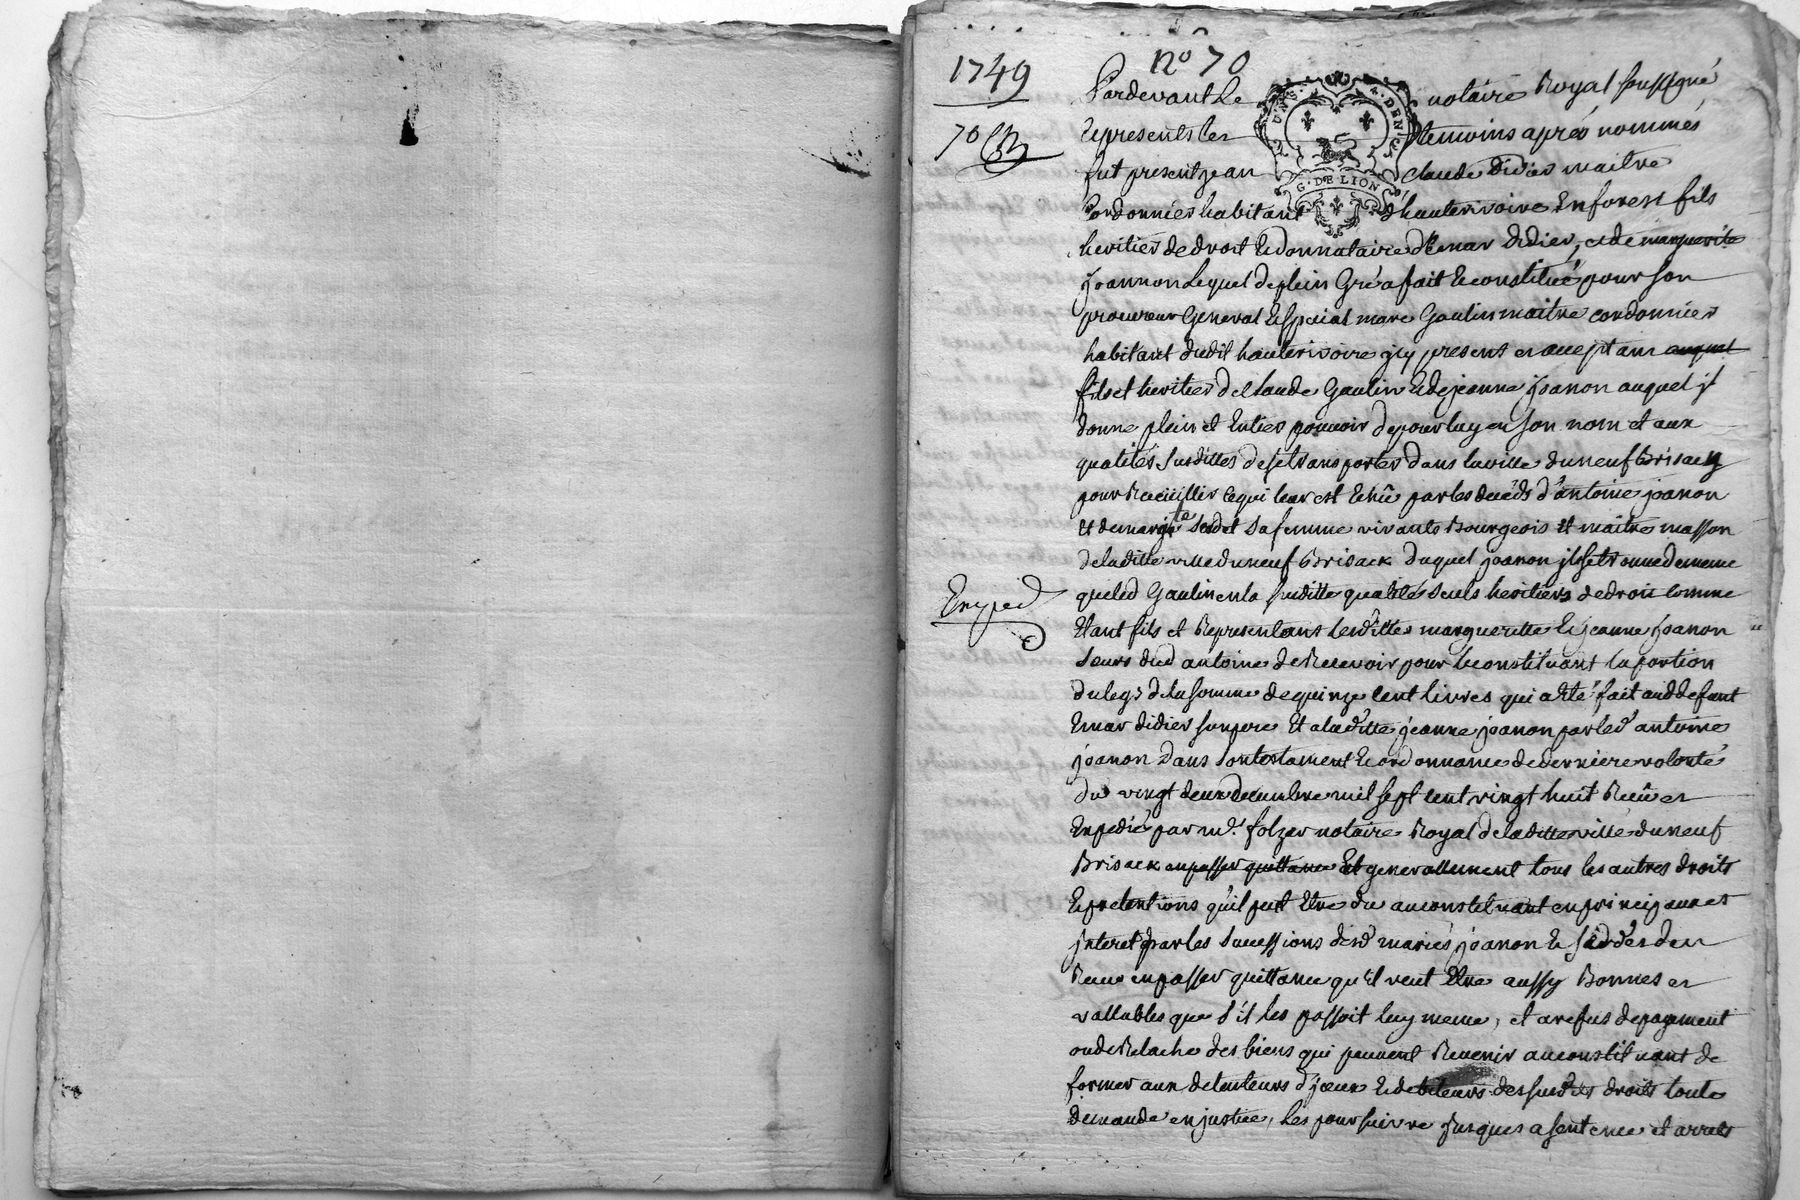 1749
no 70
70
Pardevant Le notaire Royal soussigné
Et presents les temoins aprés nommés
fut present jean claude Didier maitre
Cordonnier habitant d'hauterivoire En forest fils
heritier de droit Et donnataire d'Emar Didier, et de marguerite
Joannon Lequel de plein Gré a fait Et constitué pour son
procureur General Et special marc Gaulin maitre cordonnier
habitant dudit hauterivoire icy present et acceptant auquel
fils et heritier de Claude Gaulin Et de jeanne joanon auquel il
donne plein et Entier pouvoir de pour luy en son nom et aux
qualités susdittes de se transporter dans la ville du neuf Brisack
pour Recüeillir ce qui leur est Echû par les decéds d'antoine joanon
Et de margte sa femme vivants Bourgeois Et maitre masson
de la ditte ville du neuf Brisack duquel joanon il se trouve de meme
que led Gaulin en la susditte qualité seuls heritiers de droit comme
Etant fils et Representans lesdittes margueritte Et jeanne joanon
Exped
soeurs dud antoine de Recevoir pour le constituant la portion
du legs de la somme de quinze cent livres qui a Eté fait aud defunt
Emar didier son pere Et a laditte jeanne joanon par led antoine
joanon dans son testament Et ordonnance de derniere volonté
du vingt deux decembre mil sept cent vingt huit Reçû et
Expedié par me. folzer notaire Royal de laditte ville du neuf
Brisack en passer quittance Et generallement tous les autres droits
Et pretentions qu'il peut Etre du au constituant en principaux et
interets par les successions desd mariés joanon Et
Recu en passer quittance qu'il veut Etre aussy Bonnes et
vallables que s'il les passoit luy meme, et a refus de payement
ou de Relache des biens qui peuvent Revenir au constituant de
former aux detenteurs d'iceux Et debiteurs des susdits droits toute
demande en justice, les poursuivre jusques a sentence et arrets